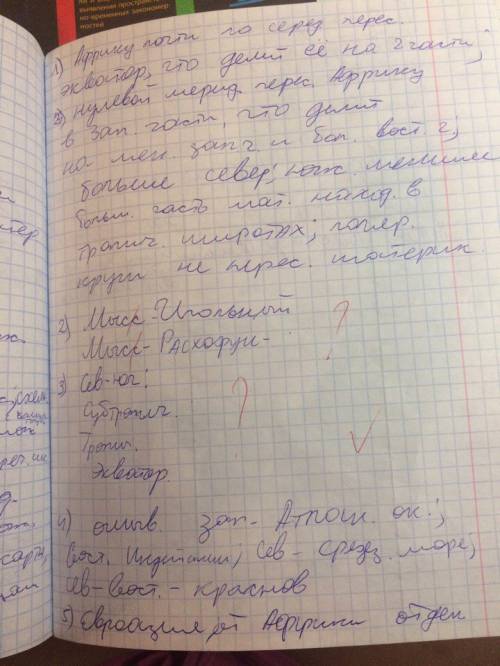 выявления пространст
но-временных закономер
ностей
1) Африку почти по серед. перес.
экватор, что делит её на 2 части;
2) нулевой мерид. перес. Африку
в зап. части, что делит
на мен. зап. ч и бол. вост. ч;
больше север; юж. меньше
больш. часть мат. наход. в
тропич. широтах; поляр.
круги не перес. материк.
2) Мысс-Игольный ?
Мысс-Расхафун-
3) Сев-юг: ?
Субтропич.
Тропич.
Экватор.
4) омыв. зап.- Атлан. ок.;
Вост. Индейский; Сев - средез. море;
Сев-Вост. - Красное
5) Евроазия от Африки отдел